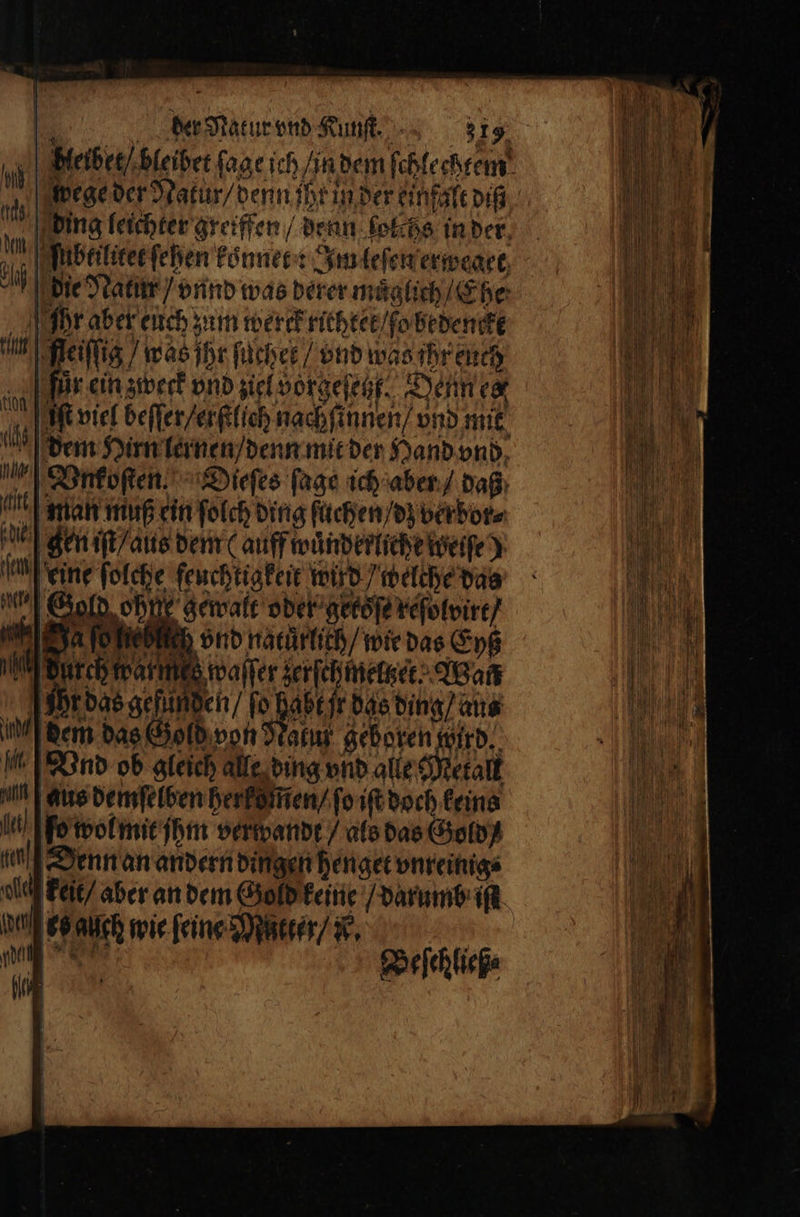 der Natur vnd Kunſt. 319
bleibet/ bleibet ſage ich /in dem ſchlechtem
wege der Natur/ denn jhr in der einfalt diß
ding leichter greiffen / denn ſolchs in der
ſubtilitet ſehen koͤnnet: Im leſen erweget
die Natur / vnnd was derer muͤglich / Ehe
Jhr aber euch zum werck richtet/ ſo bedencke
fleiſſig / was jhr ſuchet / vnd was jhr euch
fuͤr ein zweck vnd ziel vorgeſetzt. Denn es
iſt viel beſſer/erſtlich nachſinnen/ vnd mit
dem Hirn lernen/denn mit der Hand vnd
Vnkoſten. Dieſes ſage ich aber / daß
man muß ein ſolch ding ſuchen/dz verbor⸗
gen iſt/ aus dem ( auff wuͤnderliche weiſe )
eine ſolche feuchtigkeit wird / welche das
Gold ohne gewalt oder getoͤſe reſolvirt/
Ja ſo lieblich vnd natuͤrlich/ wie das Eyß
durch warmes waſſer zerſchmeltzet. Wañ
Jhr das gefunden / ſo habt jr das ding/ aus
dem das Gold von Natur geboren wird.
Vnd ob gleich alle ding vnd alle Metall
aus demſelben herkom̃en/ ſo iſt doch keins
ſo wol mit jhm verwandt / als das Gold/
Denn an andern dingen henget vnreinig⸗
keit/ aber an dem Gold keine / darumb iſt
es auch wie ſeine Mutter/ ꝛc.
Beſchließ⸗